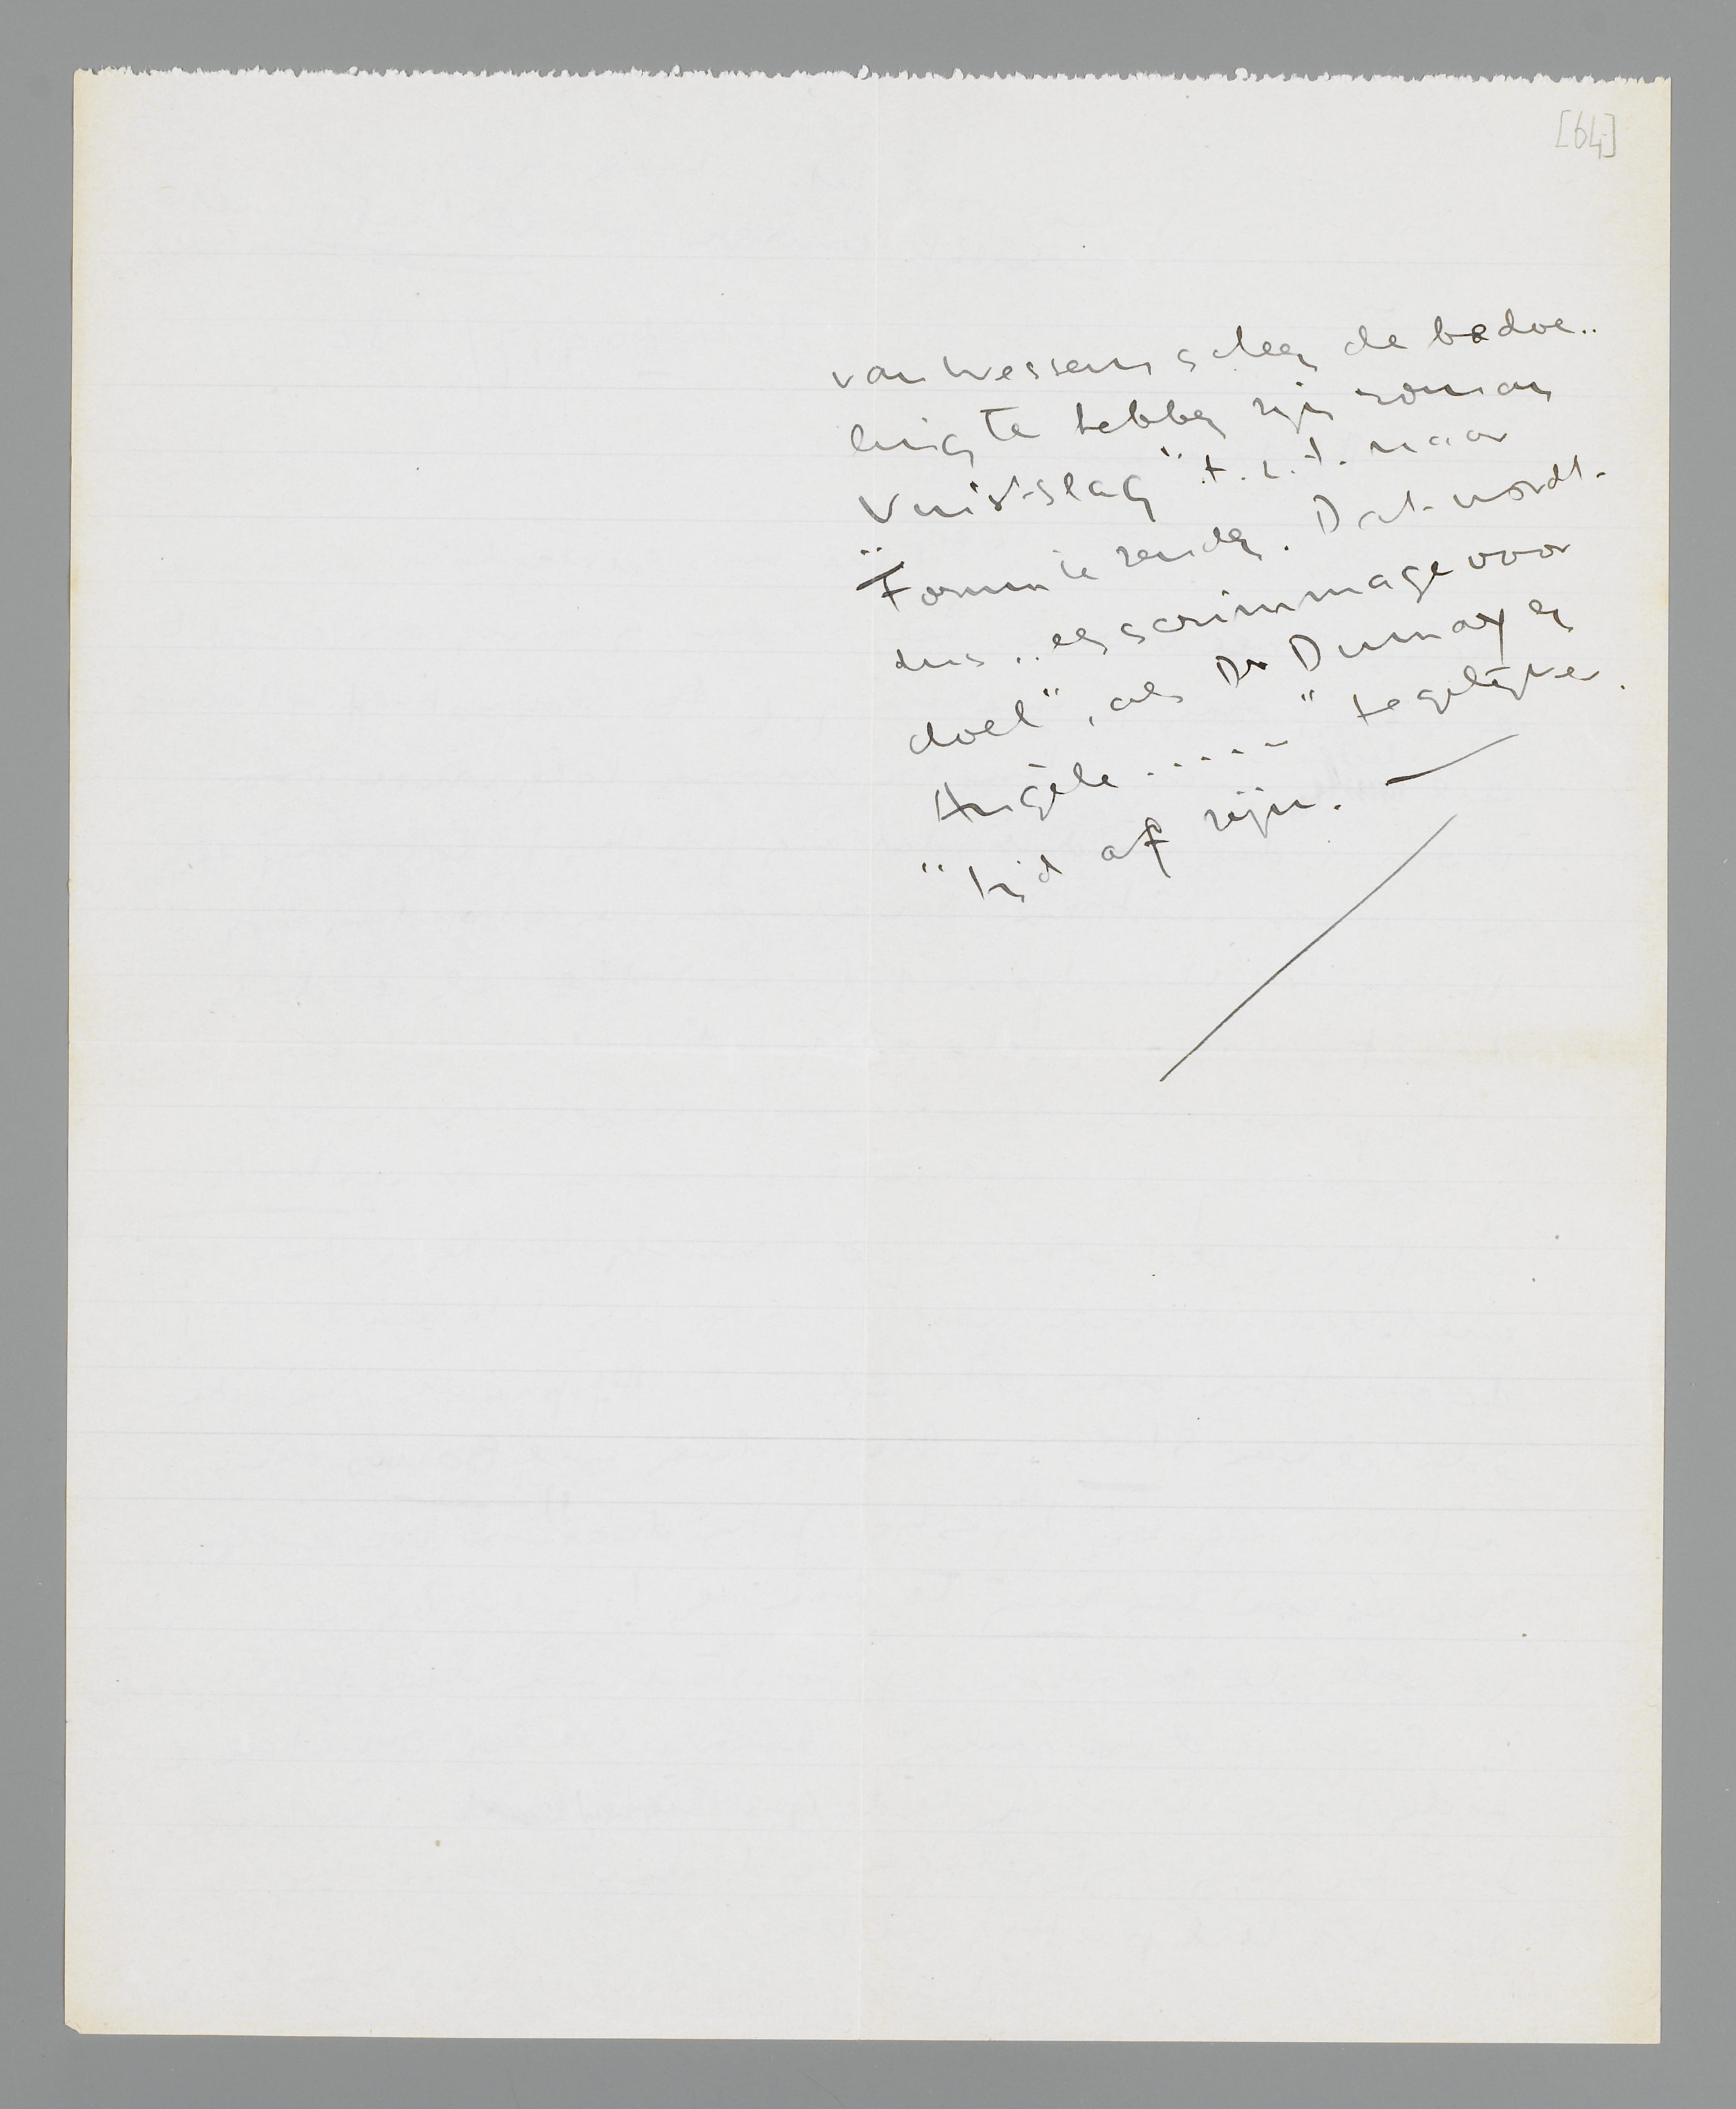 [64]
van Wessem scheen de bedoe-
ling te hebben zijn roman
„Vuistslag" t.z.t. naar
Forum te zenden. Dat wordt
dus „een scrimmage voor
doel", als Dr Dumay en
Angèle ..... " tegelijker-
" tijd af zijn. —